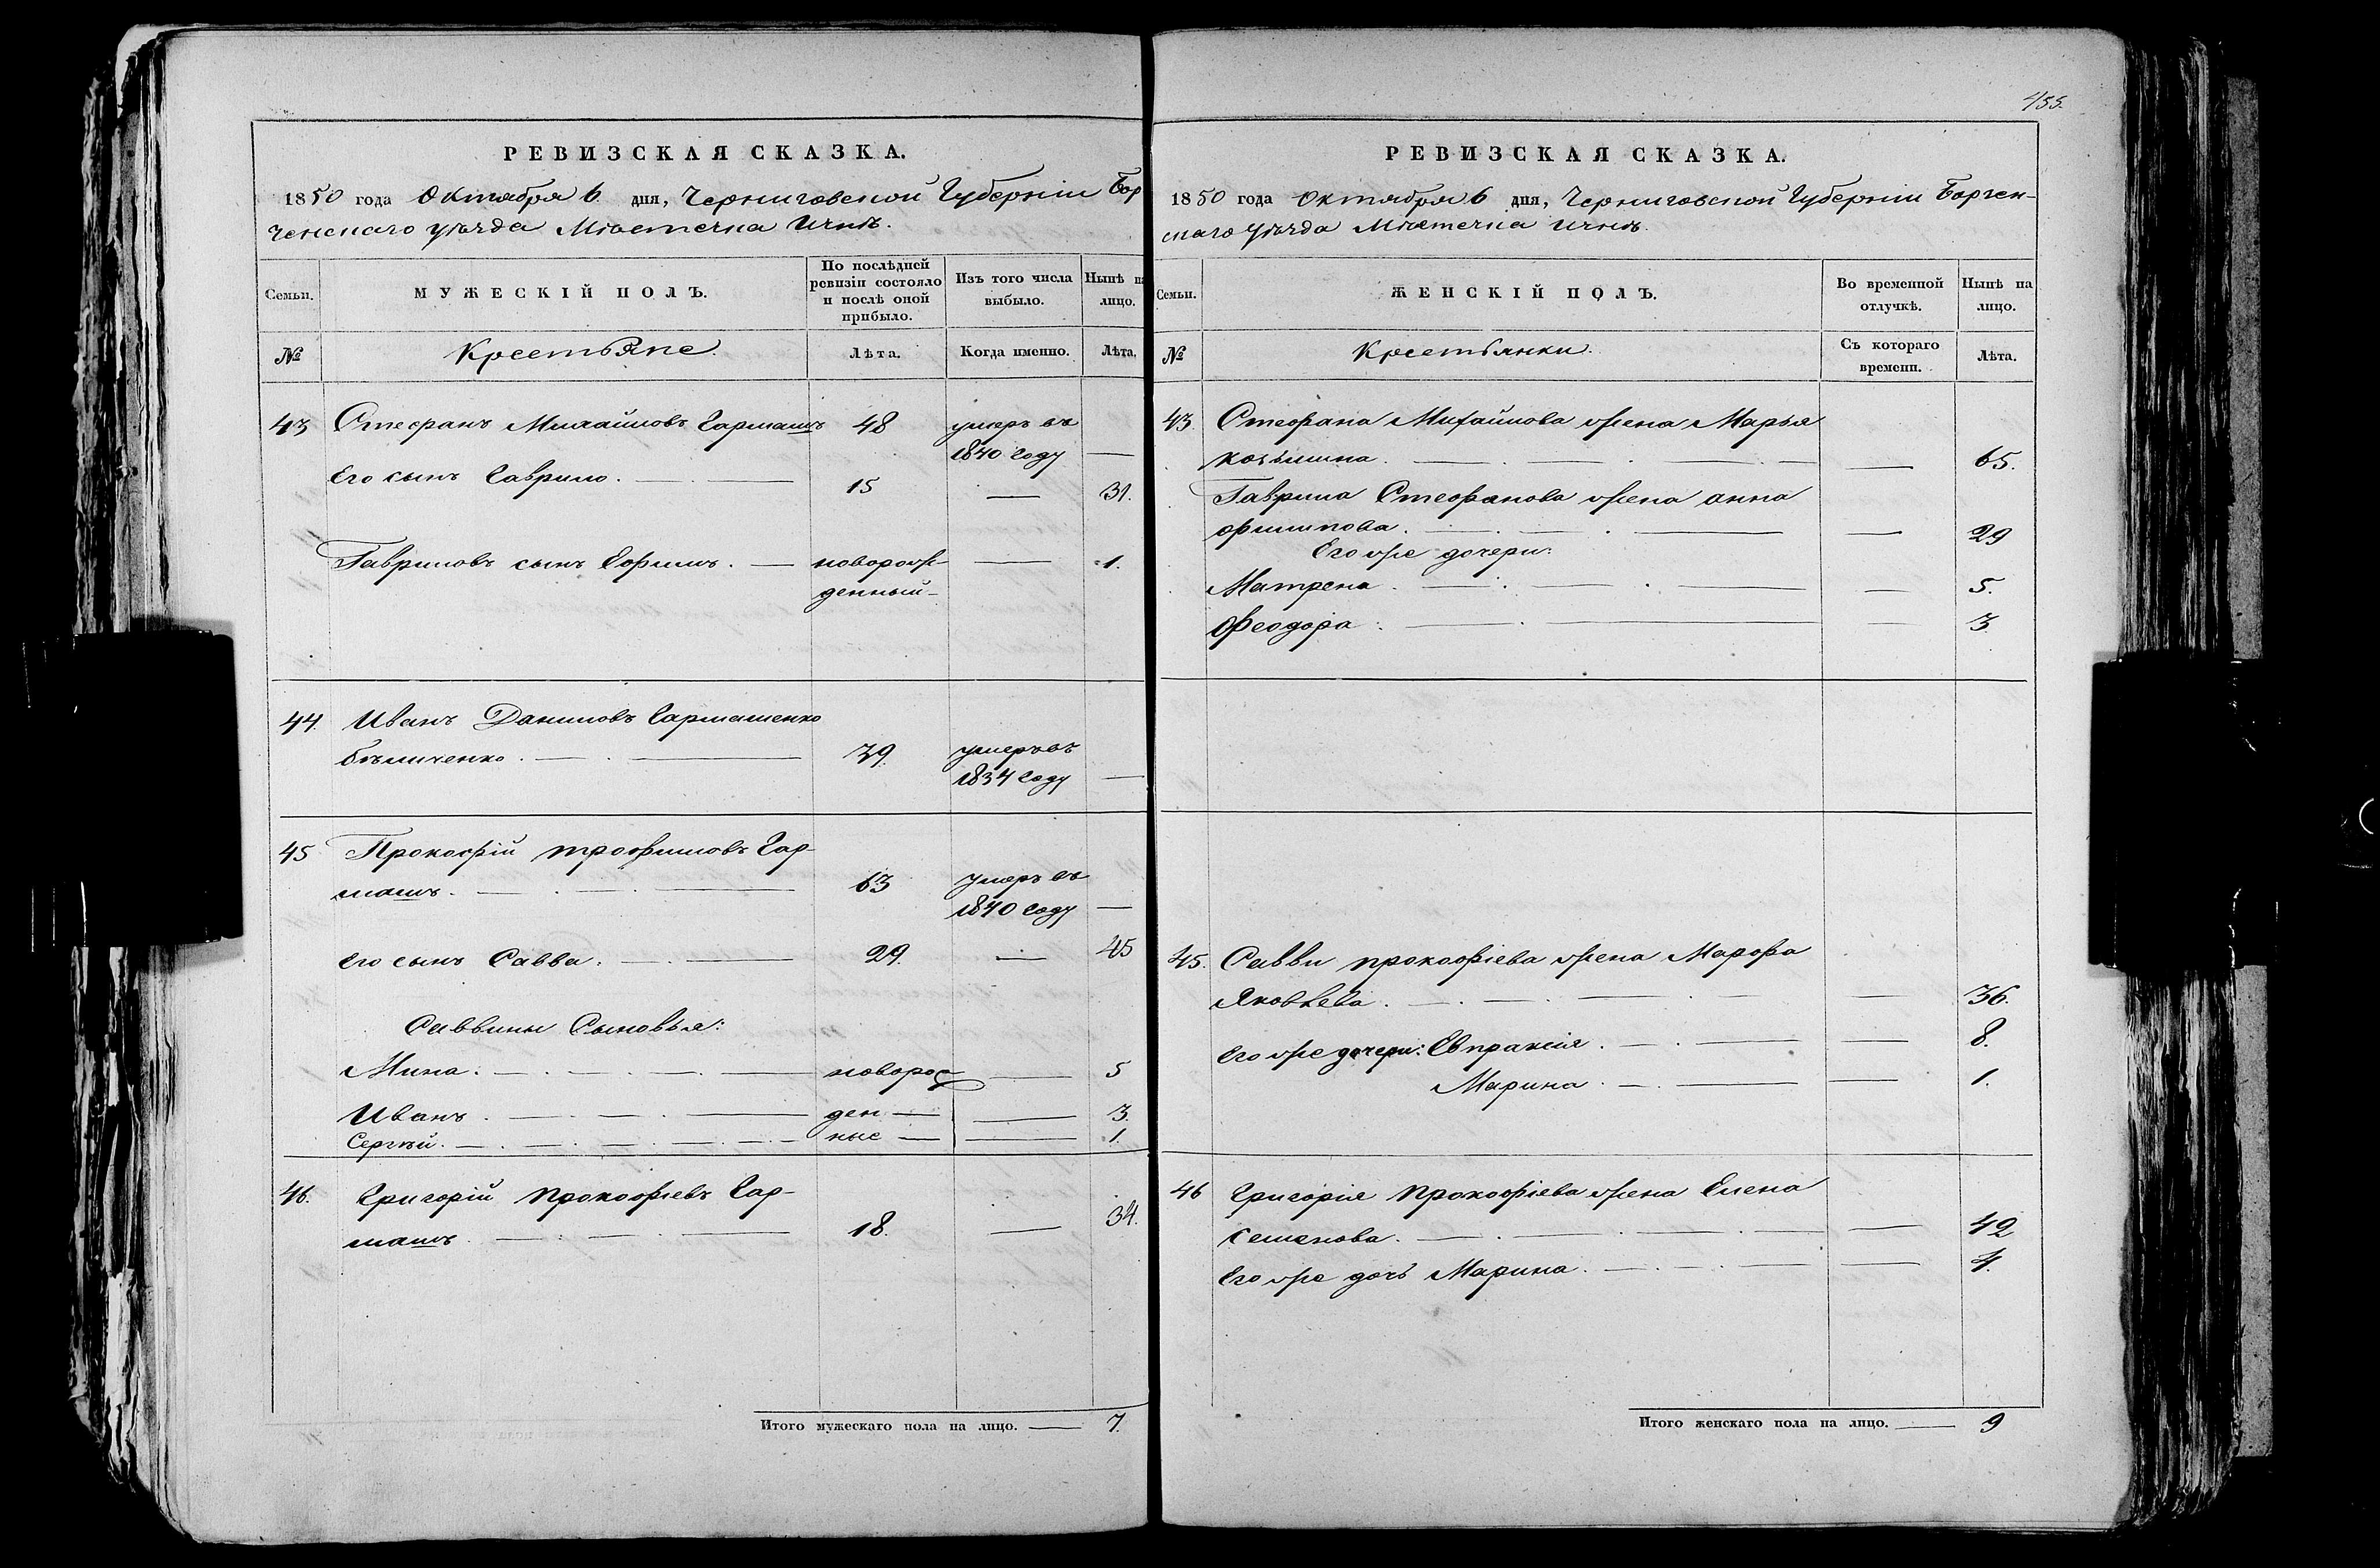 455.
РЕВИЗСКАЯ СКАЗКА.
1850 года Октября 6 дня, Черниговской Губерніи Бор
ченскаго уѣзда Мѣстечка Ични.
Семьи.
МУЖЕСКІЙ ПОЛЪ.
По послѣдней ревизіи состояло и послѣ оной прибыло.
Изъ того числа выбыло.
Нынѣ на лицо.
№
Крестьяне.
Лѣта.
Когда именно.
Лѣта.
43 Стефанъ Михайловъ Гармашъ 48 умеръ въ
1840 году —
Его сынъ Гаврило. — 15 — 31.
Гавриловъ сынъ Ефимъ. — новорож- — 1.
денный
44. Иванъ Даниловъ Гармашенко
Бѣличенко. — 39. умеръ въ
1834 году —
45 Прокофій Трофимовъ Гар-
машъ. — 63 умеръ въ
1840 году —
Его сынъ Савва. — 29. — 45
Саввины Сыновья:
Мина. — новорож — 5
Иванъ. — ден — — 3.
Сергѣй. — ные — — 1.
46. Григорій Прокофіевъ Гар-
машъ. — 18. — 34.
Итого мужескаго пола на лицо. — 7.
РЕВИЗСКАЯ СКАЗКА.
1850 года Октября 6 дня, Черниговской Губерніи Борзен-
скаго уѣзда Мѣстечка Ични.
Семьи.
ЖЕНСКІЙ ПОЛЪ.
Во временной отлучкѣ.
Нынѣ на лицо.
№
Крестьянки.
Съ котораго времени.
Лѣта.
43. Стефана Михайлова жена Марья
Козьмина. — — 65.
Гаврила Стефанова жена Анна
Филипова. — — 29
Его же дочери:
Матрена. — — 5.
Феодора. — — 3
45. Савви Прокофіева жена Марфа
Яковлева. — — 36.
Его же дочери: Евпраксія. — — 8.
Марина. — — 1.
46 Григорія Прокофіева жена Елена
Семенова. — — 42
Его же дочь Марина. — — 4.
Итого женскаго пола на лицо. — 9